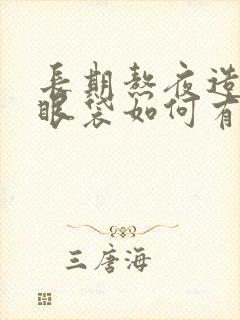 長期熬夜造
眼袋如何有
三唐海